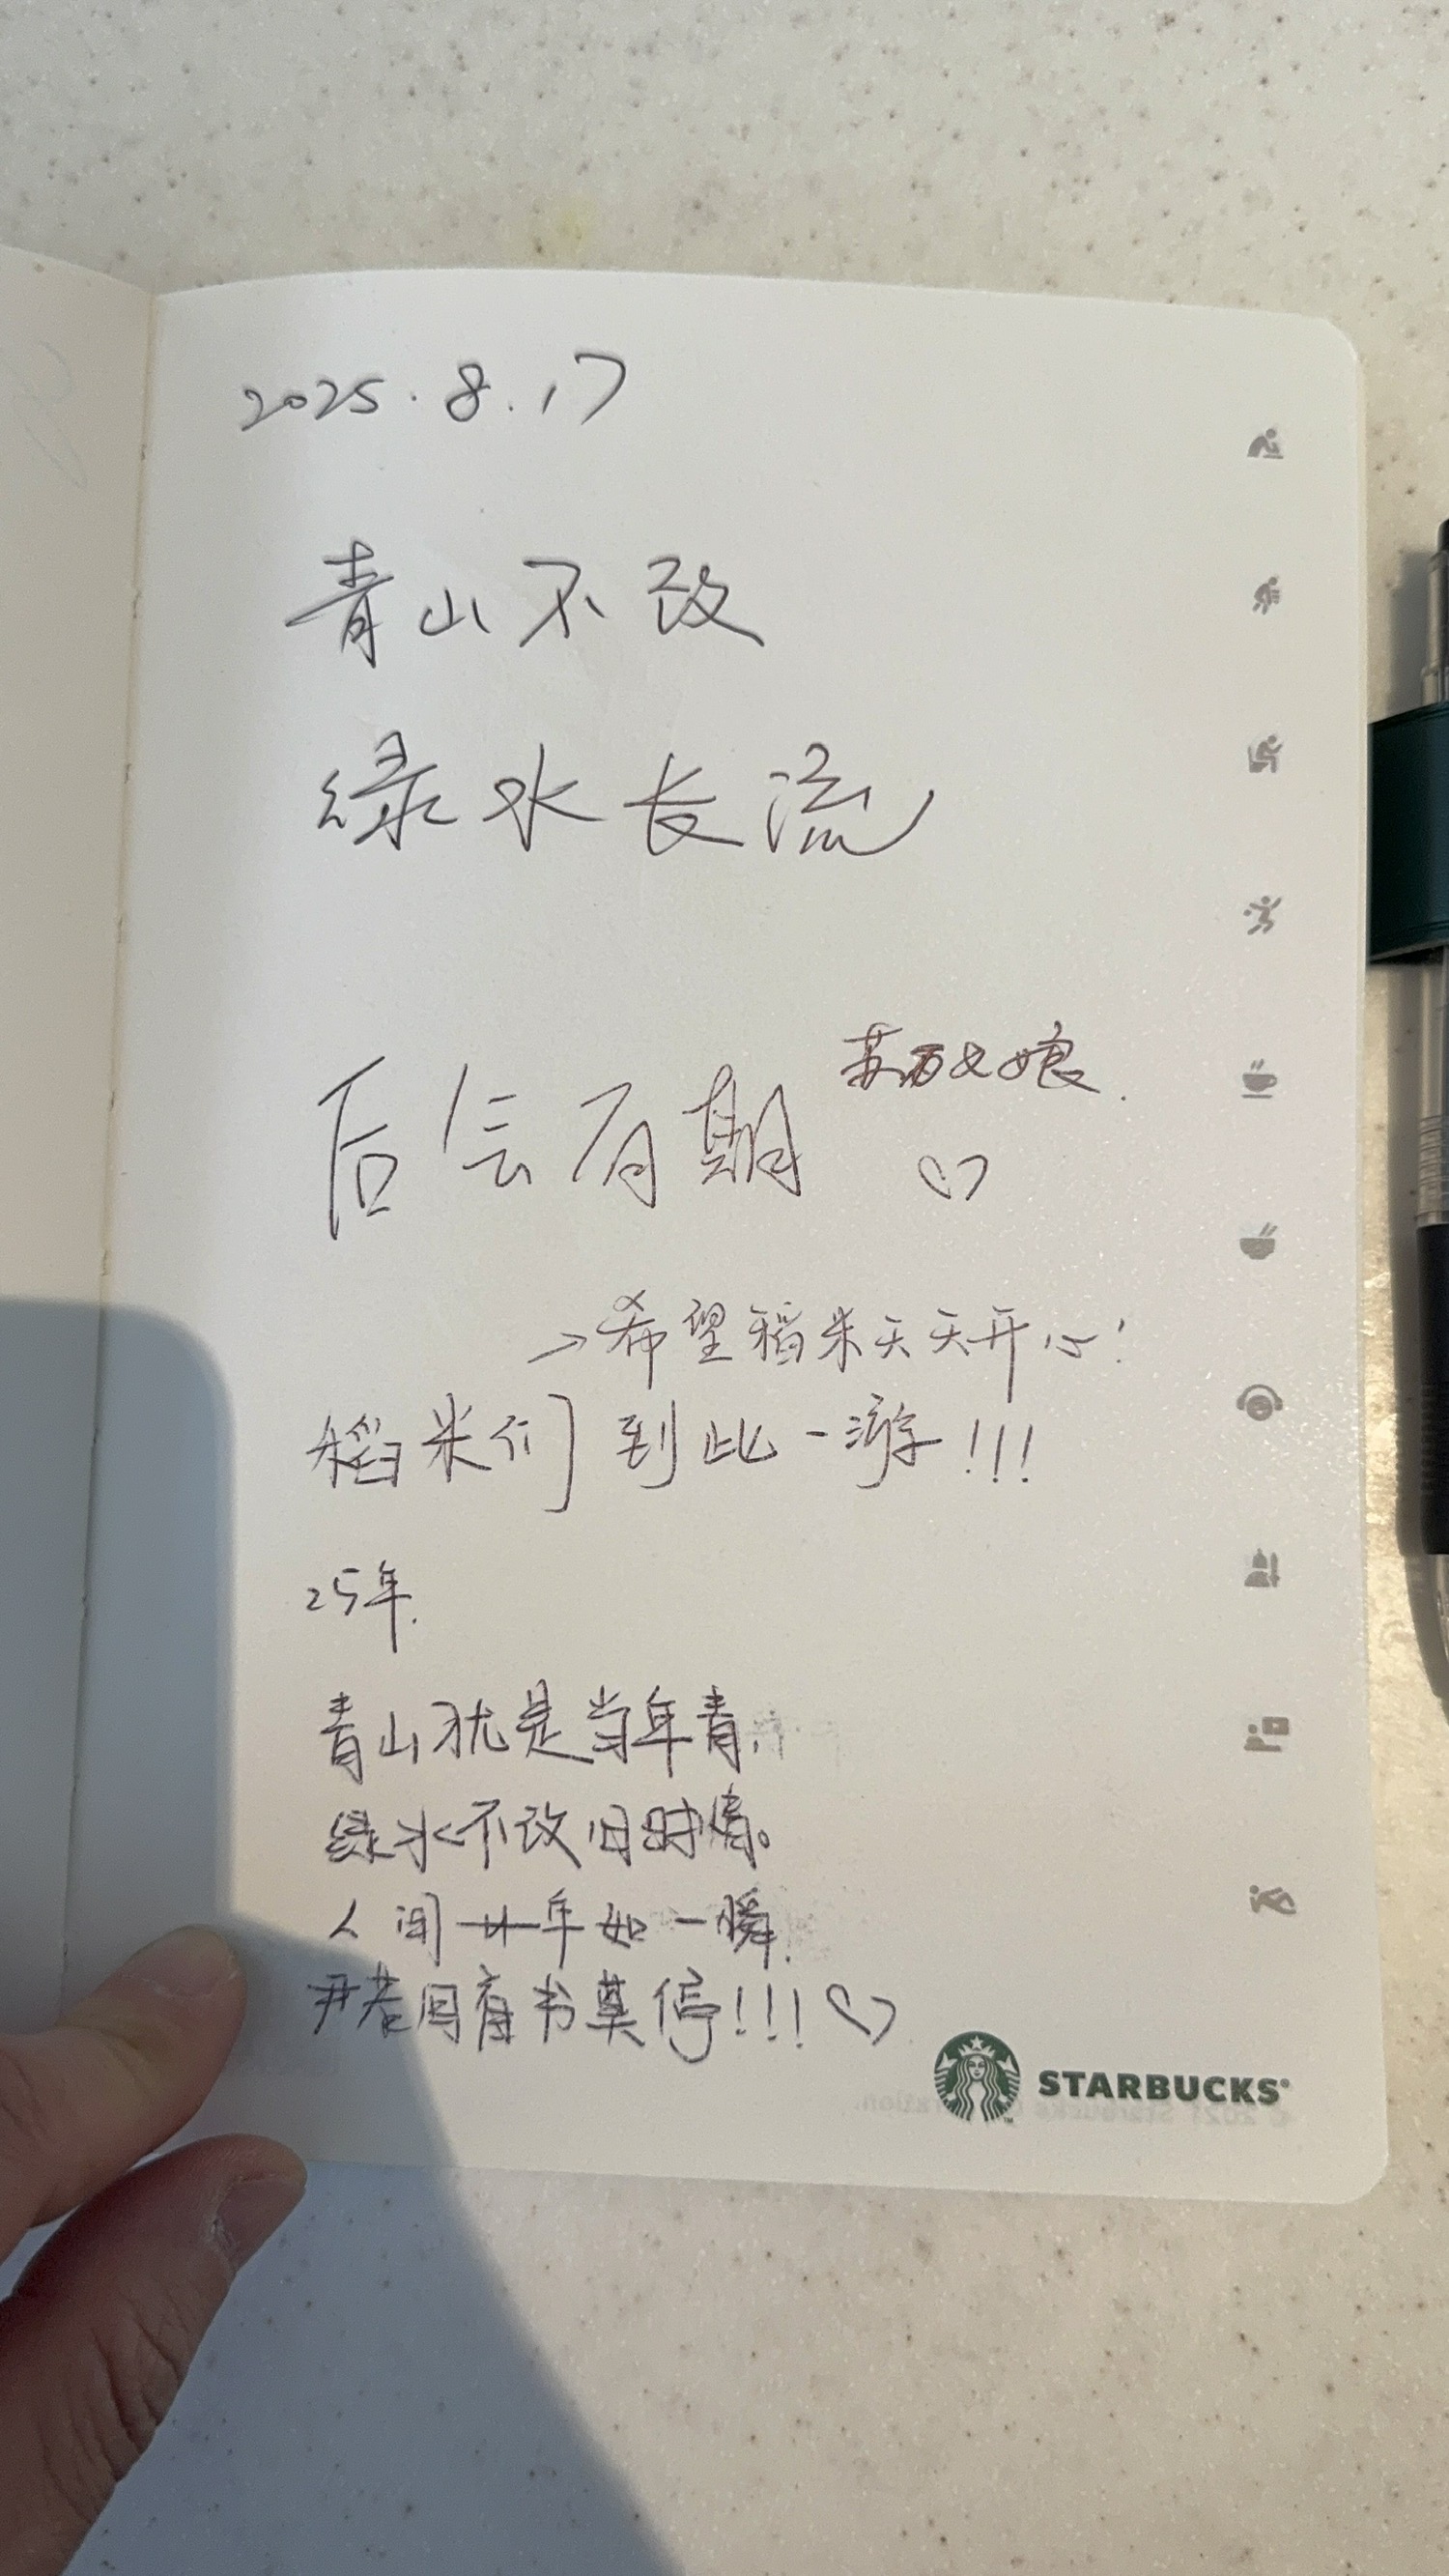 2025.8.17
青山不改
绿水长流
后会有期
苏西女娘.
→希望稻米天天开心!
稻米们到此一游!!!
25年.
青山犹是当年青.
绿水不改旧时情。
人间廿年如一瞬.
莫停!!!
STARBUCKS